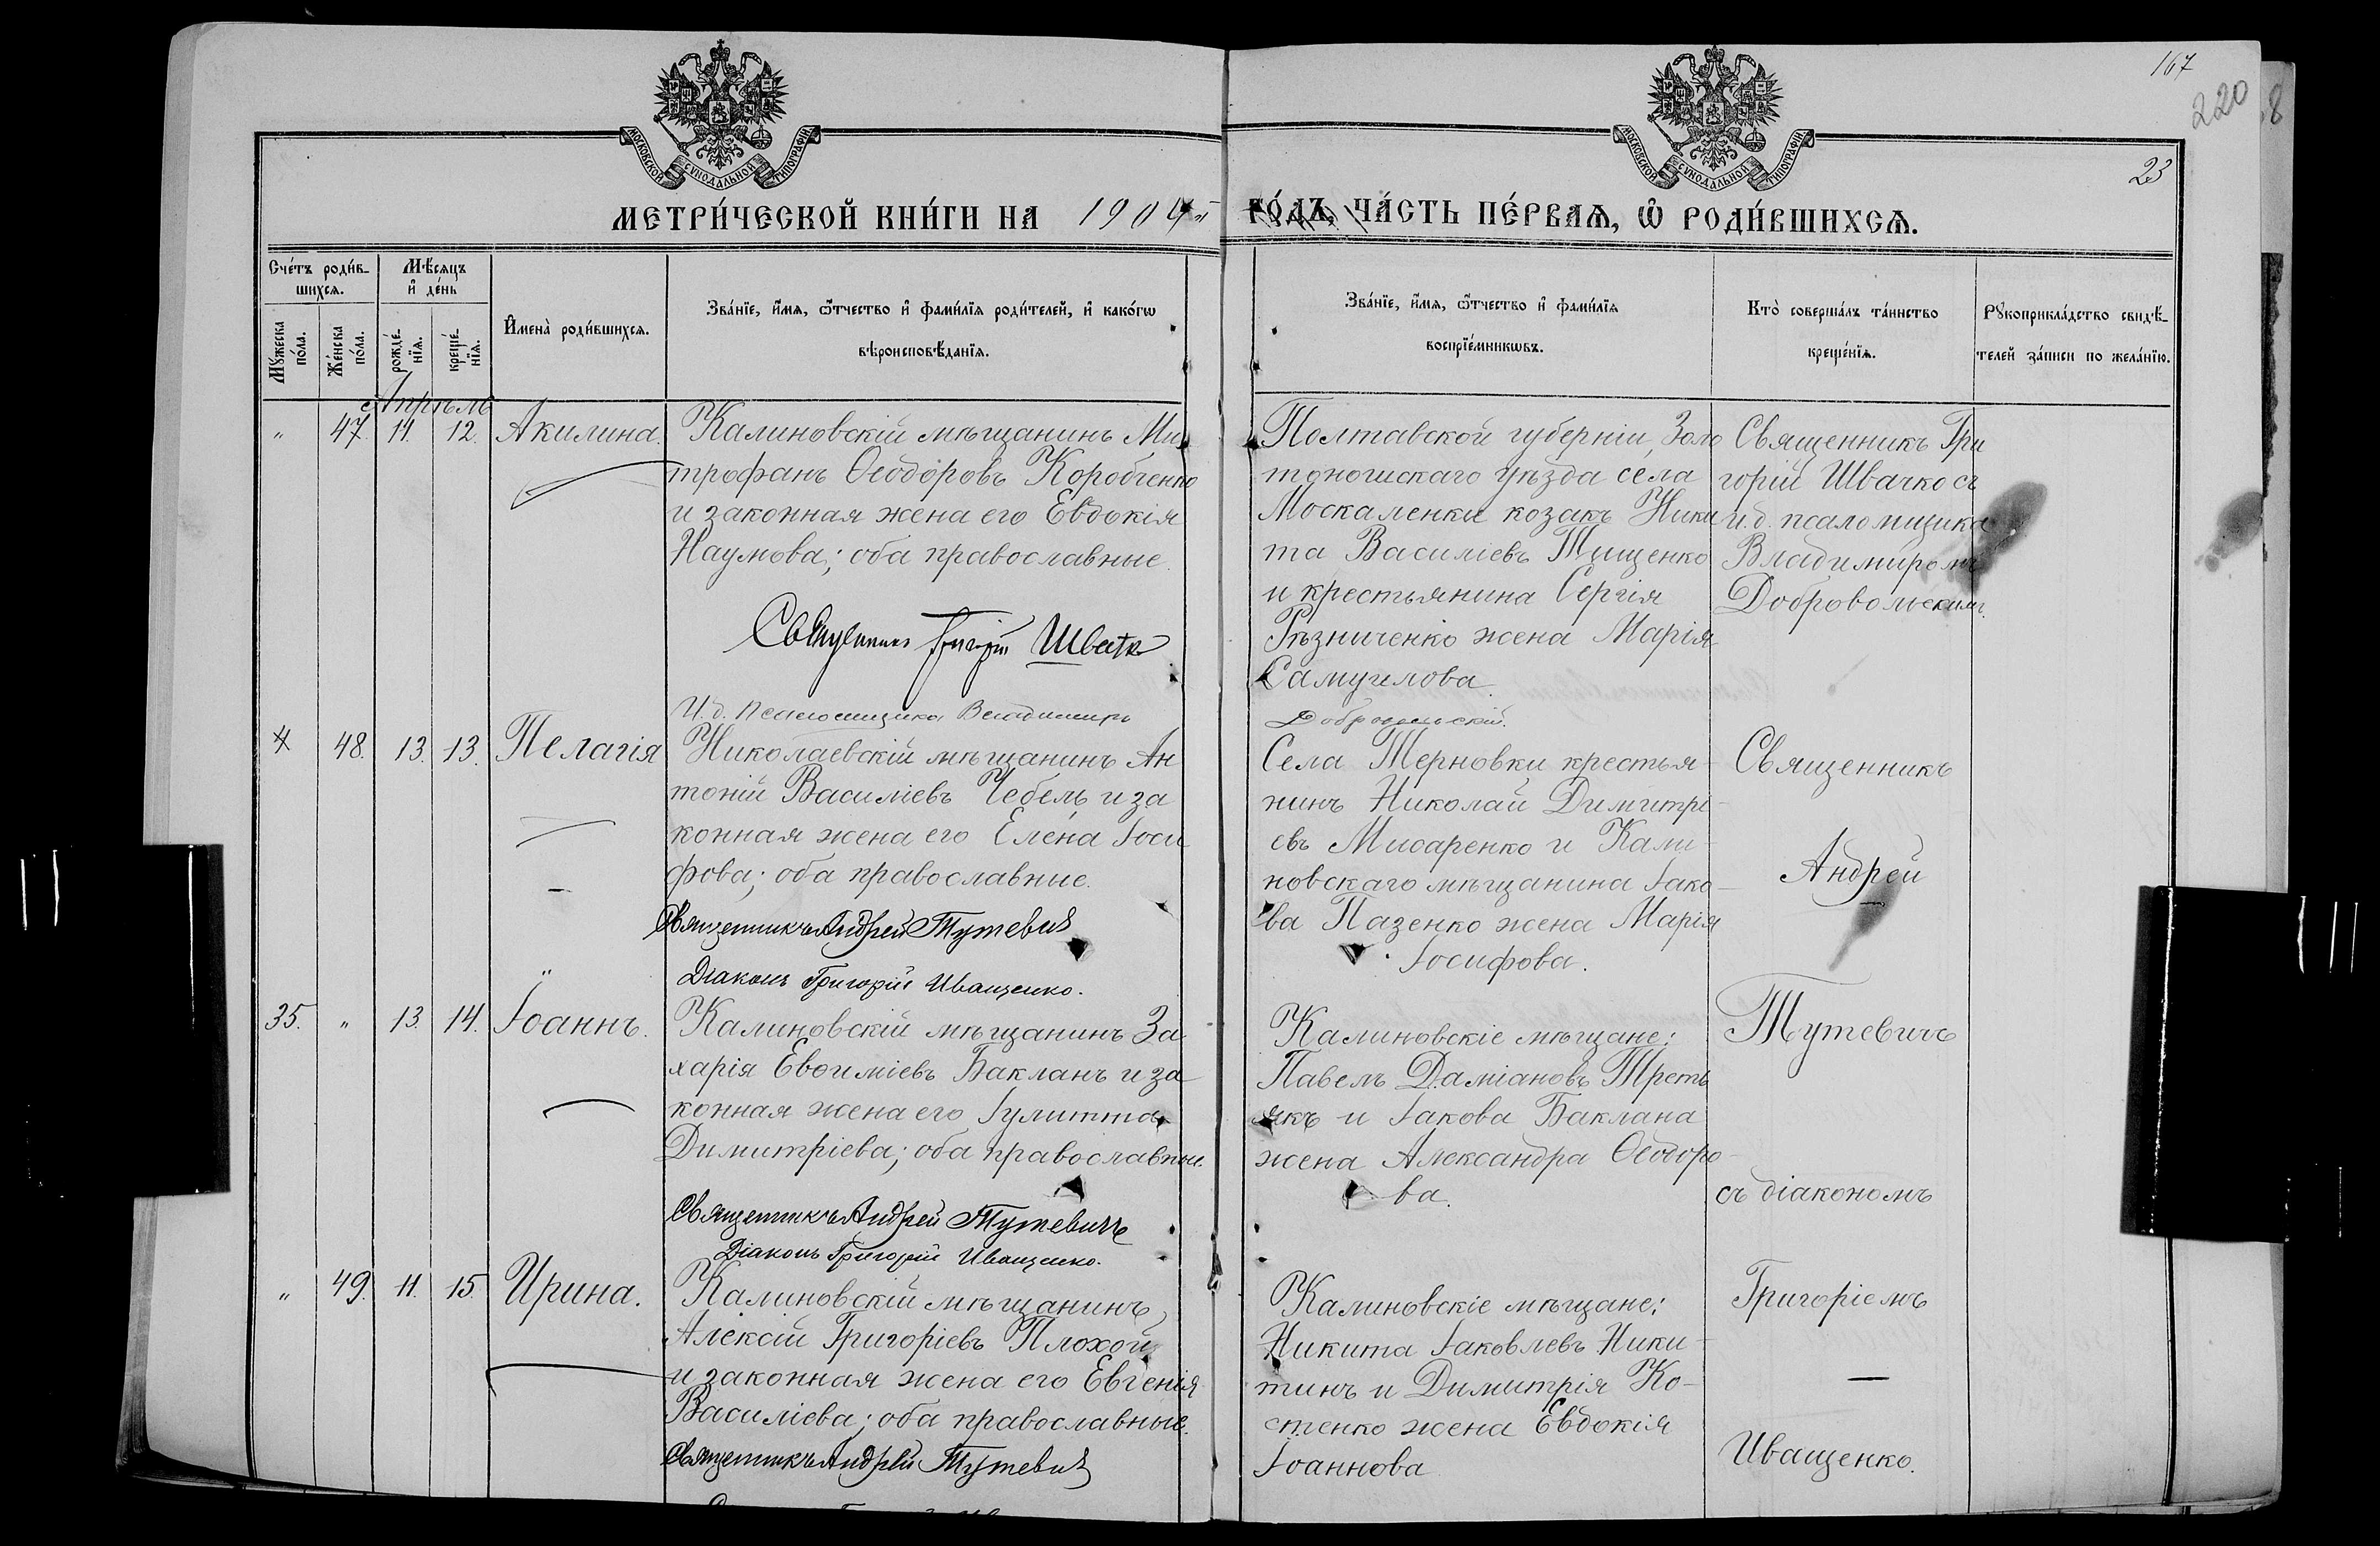 167
220
8
23
МОСКОВСКОЙ СѴНОДАЛЬНОЙ ТИПОГРАФІИ
МОСКОВСКОЙ СѴНОДАЛЬНОЙ ТИПОГРАФІИ
МЕТРИ́ЧЕСКОЙ КНИ́ГИ НА 1904 й
ГО́ДЪ, ЧА́СТЬ ПЕ́РВАѦ, Ѡ҆ РОДИ́ВШИХСѦ.
Сче́тъ роди́в-
шихсѧ.
Мꙋ́жеска по́ла.
Же́нска по́ла.
Мѣ́сѧцъ
и҆ де́нь
рожде́-
нїѧ.
креще́-
нїѧ.
И҆мена̀ роди́вшихсѧ.
Зва́нїе, и҆́мѧ, ѻ҆́тчество и҆ фами́лїѧ роди́телей, и҆ како́гѡ
вѣроисповѣ́данїѧ.
Зва́нїе, и҆́мѧ, ѻ҆́тчество и҆ фами́лїѧ
воспрїе́мникѡвъ.
Кто̀ соверша́лъ та́инство
креще́нїѧ.
Рꙋкоприкла́дство свидѣ́-
телей за́писи по жела́нїю.
Апрѣль
" 47. 11. 12. Акилина.
Калиновскій мѣщанинъ Ми
трофанъ Ѳеодоровъ Коробченко
и законная жена его Евдокія
Наумова; оба православные.
Священникъ Григорій Швачко
И.д. Псаломщика Владимиръ
Добровольскій.
Полтавской губерніи, Золо
тоношскаго уѣзда села
Москаленки козакъ Ники
та Василіевъ Тищенко
и крестьянина Сергія
Рѣзниченко жена Марія
Самуилова.
Священникъ Гри
горій Швачко съ
и.д. псаломщика
Владимиромъ
Добровольскимъ.
48. 13. 13. Пелагія
Николаевскій мѣщанинъ Ан
тоній Василіевъ Чебель и за
конная жена его Елена Іоси
фова; оба православные.
Священникъ Андрей Тутевичъ
Діаконъ Григорій Иващенко.
Села Терновки крестья-
нинъ Николай Димитрі-
евъ Писаренко и Кали-
новскаго мѣщанина Іако-
ва Пазенко жена Марія
Іосифова.
Священникъ
Андрей
Тутевичъ
съ діакономъ
Григоріемъ
Иващенко.
35. " 13. 14. Іоаннъ.
Калиновскій мѣщанинъ За
харія Евѳиміевъ Бакланъ и за
конная жена его Іулитта
Димитріева; оба православные.
Священникъ Андрей Тутевичъ
Діаконъ Григорій Иващенко.
Калиновскіе мѣщане:
Павелъ Даміановъ Треть
якъ и Іакова Баклана
жена Александра Ѳеодоро-
ва.
" 49. 11. 15. Ирина.
Калиновскій мѣщанинъ
Алексій Григоріевъ Плохой
и законная жена его Евгенія
Василіева; оба православные.
Священникъ Андрей Тутевичъ
Калиновскіе мѣщане:
Никита Іаковлевъ Ники-
тинъ и Димитрія Ко-
стенко жена Евдокія
Іоаннова